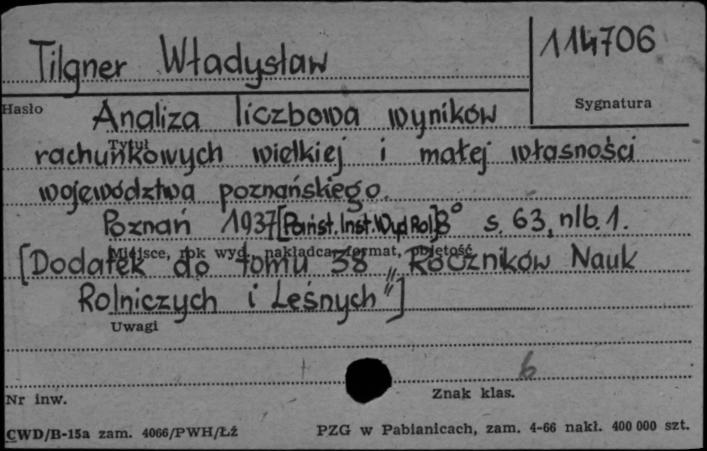 Tilgner Władysław 114706
Hasło Sygnatura
Analiza liczbowa wyników
Tytuł
rachunkowych wielkiej i małej własności
województwa poznańskiego.
Poznań 1937 [Państ. Inst. Wyd Rol] 8° s. 63, nlb. 1.
Miejsce, rok wyd., nakładca, format, objętość
[Dodatek do tomu 38 „Roczników Nauk
Rolniczych i Leśnych"]
Uwagi
b
Nr inw. Znak klas.
CWD/B-15a zam. 4066/PWH/ŁŻ PZG w Pabianicach, zam. 4-66 nakł. 400 000 szt.